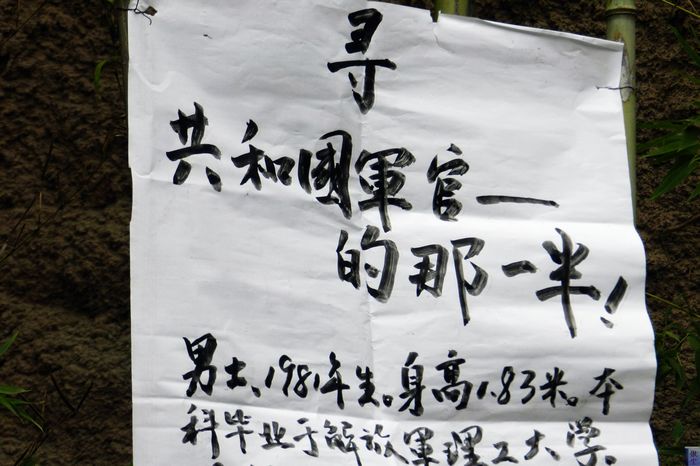 寻
共和國軍官—
的那一半！
男士、1981年生。身高1.83米。本
科毕业于解放軍理工大学